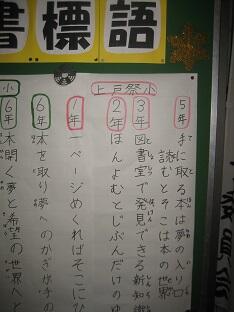 書標語
上戸祭小
5年 手に取る本は夢の入り口
読むとそこは本の世界
3年 図書室で発見できる新知
2年 ほんよむとじぶんだけのゆ
1年 一ページめくればそこにひ
小
6年 本を取り夢へのかぎが手の
6年 本開く夢と希望の世界へと